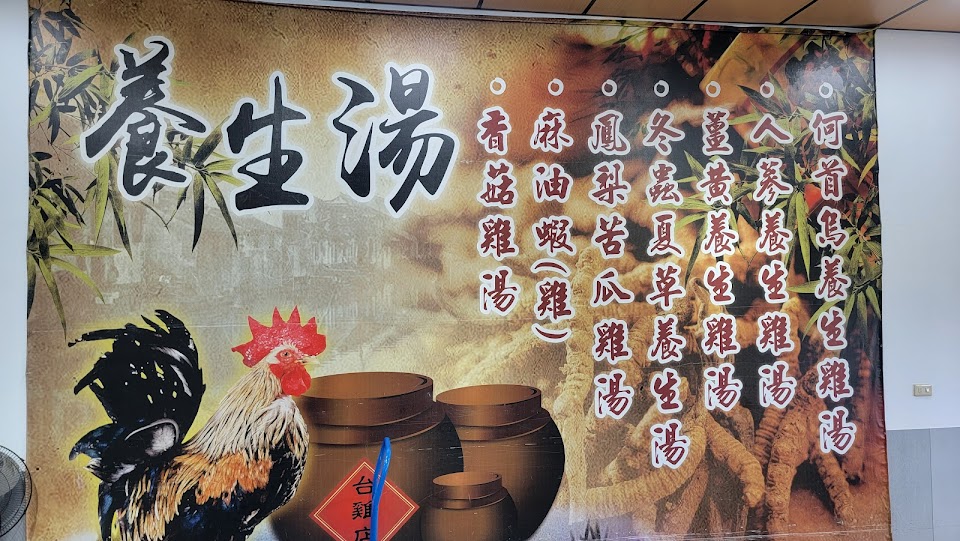 養生湯
何首烏養生雞湯
人蔘養生雞湯
薑黃養生雞湯
冬蟲夏草養生湯
鳳梨苦瓜雞湯
麻油蝦(雞)
香菇雞湯
台雞店